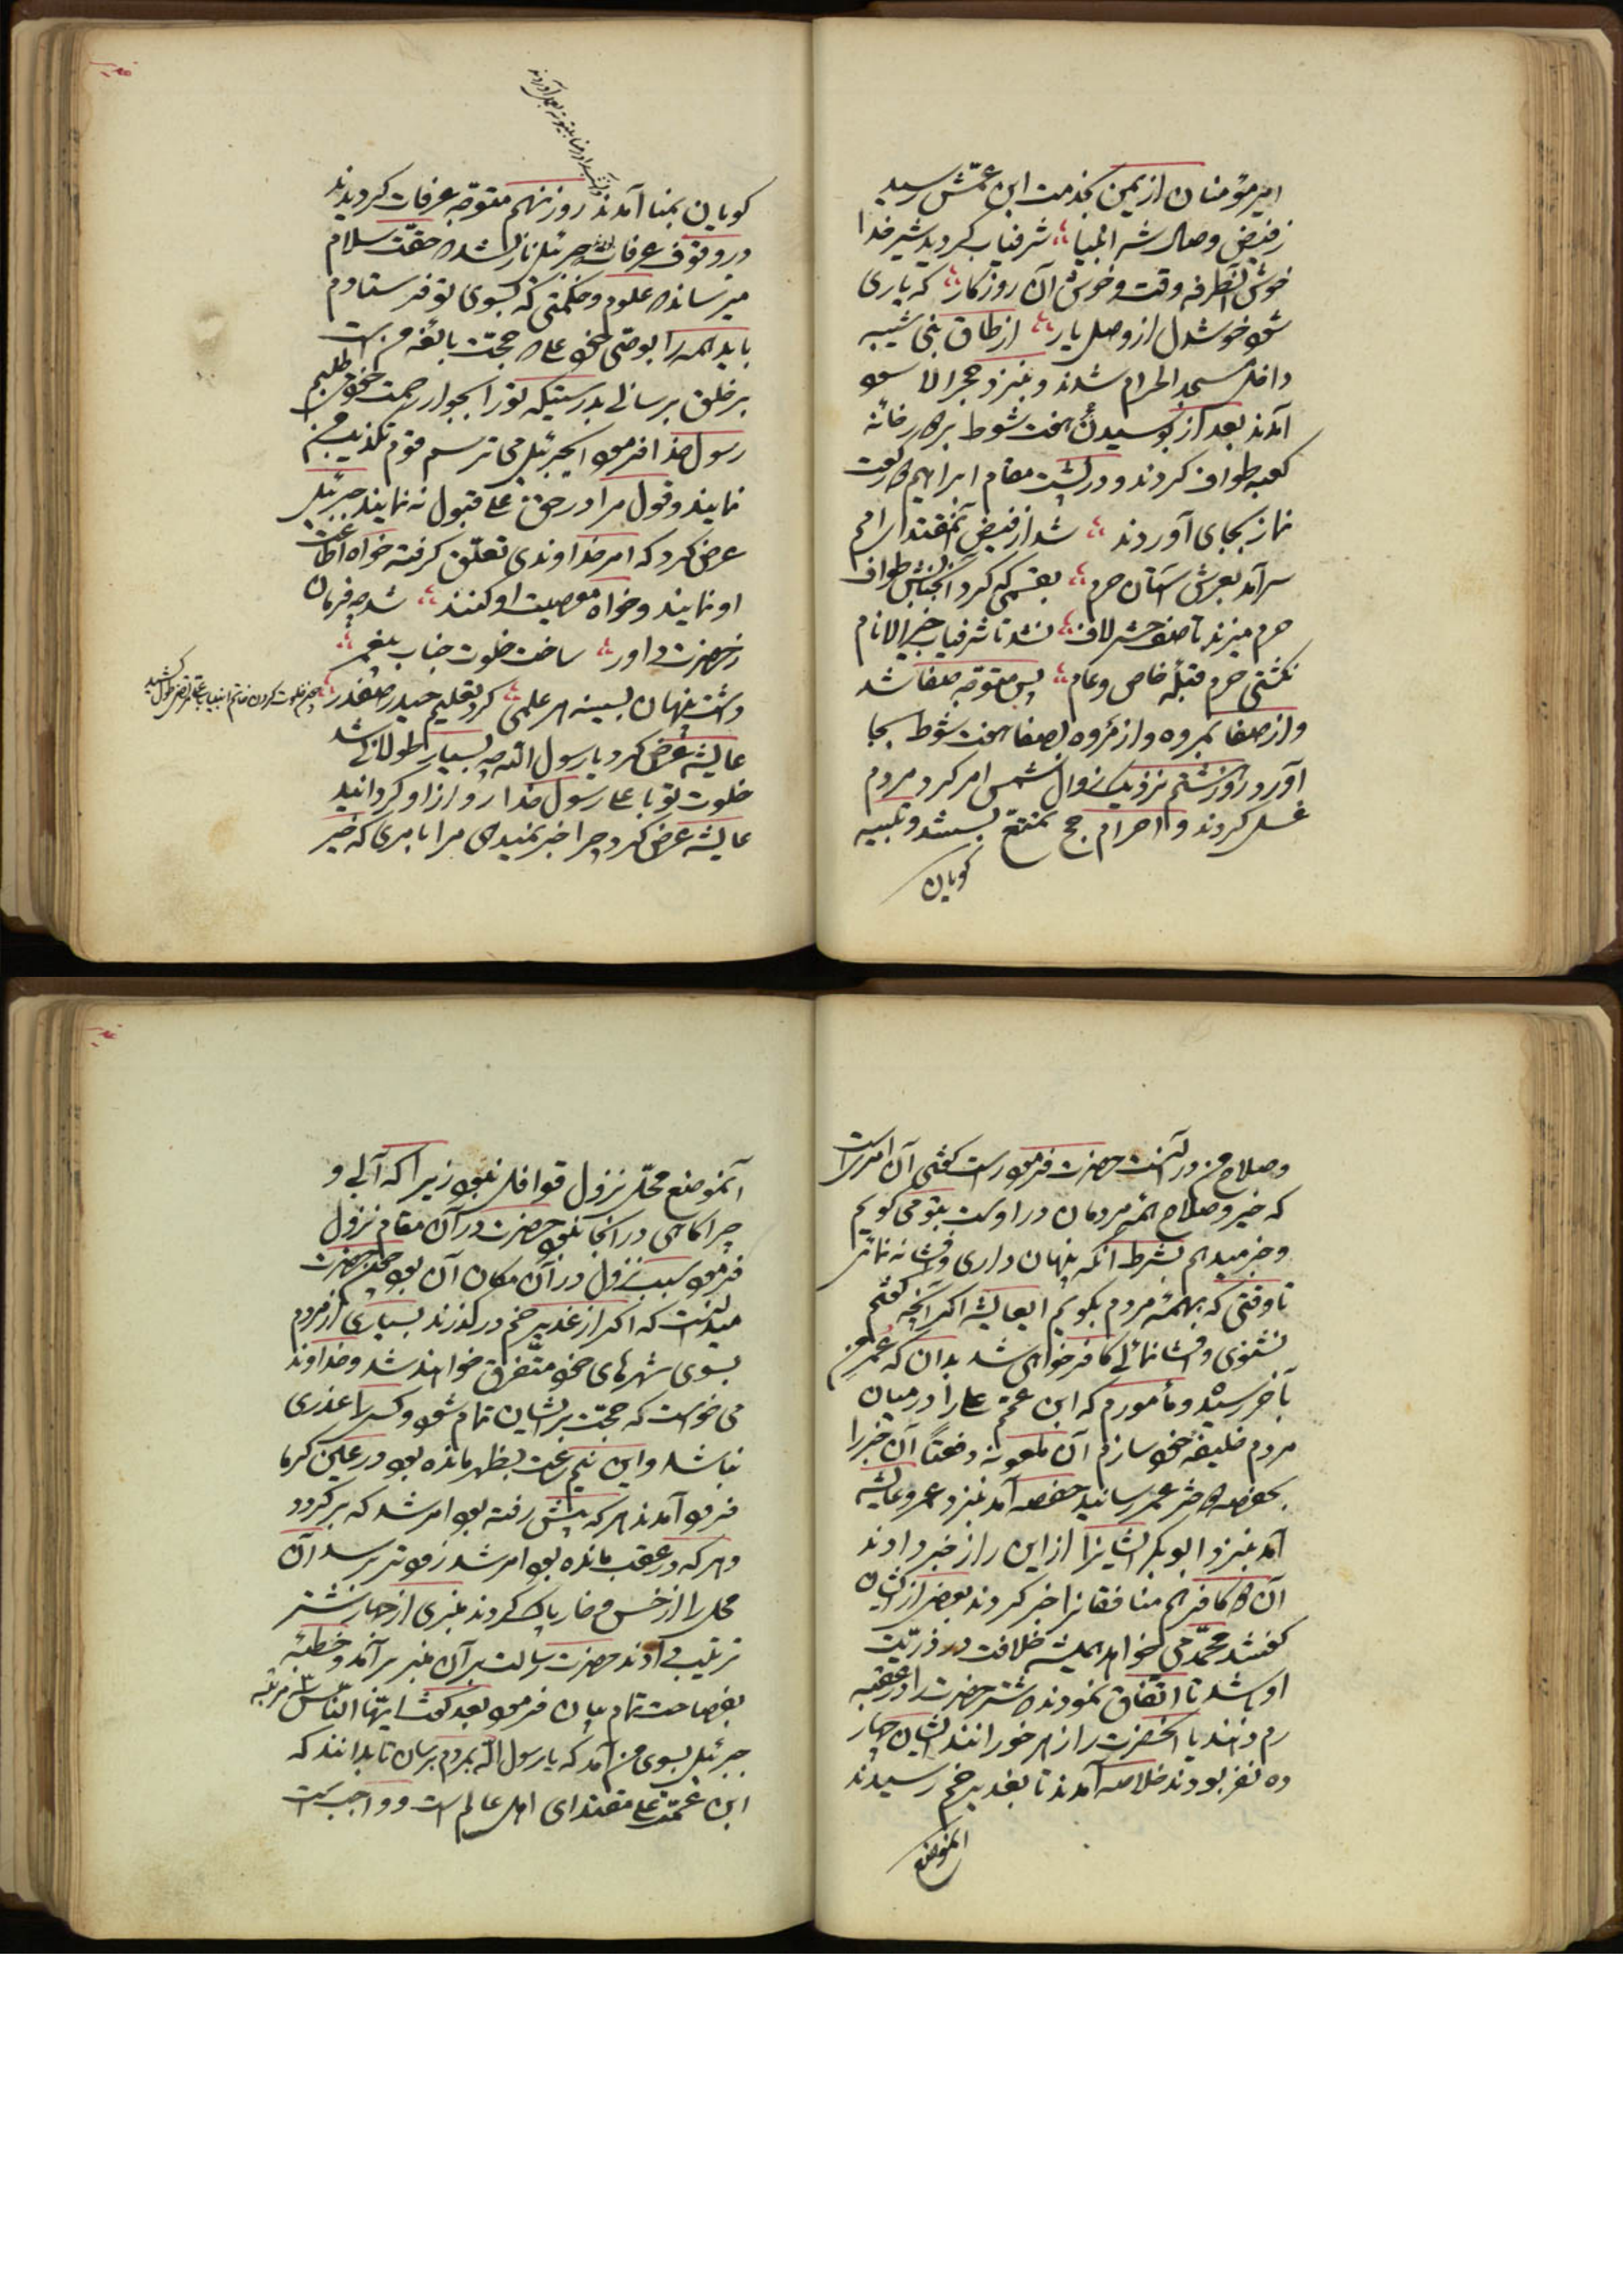 امیر مؤمنان از یمن بخدمت ابن عمّش رسید
ز فیض وصال شه انبیا شرفیاب کردید شیر خدا
خوش آنطرفه وقت و خوش آن روزکار که یاری
شود خوشدل از وصل یار از طاق بنی شیبه
داخل مسجد الحرام شدند و بنزد حجر الاسود
آمدند بعد از بوسیدن هفت شوط بر دور خانه
کعبه طواف کردند و در پشت مقام ابراهیم دو رکعت
نماز بجای آوردند شد از فیض آنمقتدا
سر آمد بعرش آستان حرم کرد طواف
حرم میزند تا صف حشر لاف نشد تا شرفیاب خیر الانام
نکشتی حرم قبلهٔ خاص و عام پس متوجّه صفا شد
و از صفا بمروه و از مروه بصفا هفت شوط بجا
آورد روز هشتم نزدیک زوال شمس امر کرد مردم
غسل کردند و احرام حج تمتّع بستند و تلبیه
کویان
کویان بمنا آمدند روز نهم متوجّه عرفات کردیدند
در وقوف عرفات جبرئیل نازل شد که حقّت سلام
میرساند که علوم و حکمتی که بسوی تو فرستادم
باید همه را بوصی خود علی که حجّت بالغه من است
بر خلق برسانی بدرستیکه ترا بجوار رحمت خود می‌طلبم
رسول خدا فرمود ایجبرئیل می ترسم قوم تکذیب من
نمایند و قول مرا در حق علی قبول نه نمایند جبرئیل
عرض کرد که امر خداوندی تعلّق کرفته خواه اطاعت
او نمایند و خواه معصیت او کنند شد چه فرمان
ز حضرت داور ساخت خلوت جناب پیغمبر
داشت پنهان بسینه هر علمی کرد تعلیم حیدر صفدر
عایشه عرض کرد یا رسول الله چه بسیار طولانی شد
خلوت تو با علی رسول خدا رو از او کردانید
عایشه عرض کرد چرا خبر نمیدهی مرا بامری که خیر
و صلاح من در آنست حضرت فرمود راست کفتی آن امریست
که خیر و صلاح همه مردمان در اوست بتو می کویم
و خبر میدهم بشرط آنکه پنهان داری و افشا نه نمائی
تا وقتی که بهمه مردم بکویم ایعایشه اکر آنچه کفتم
نشنوی و افشا نمائی کافر خواهی شد بدان که عمر من
بآخر رسیده و مأمورم که ابن عمّم علی را در میان
مردم خلیفه خود سازم آن ملعونه دفعتاً آن خبر را
بحفصه دختر عمر رسانید حفصه آمد بنزد عمر و عایشه
آمد بنزد ابوبکر ایشانرا از این راز خبر دادند
آن دو کافر هم منافقانرا خبر کردند بعضی از ایشان
کفتند محمّد می خواهد همیشه خلافت در ذرّیّت
او باشد تا اتّفاق نمودند که شتر حضرت را در عقبه
رم دهند یا آنحضرت را زهر خورانند ایشان چهار
ده نفر بودند خلاصه آمدند تا بغدیر خم رسیدند
آنموضع
آنموضع محلّ نزول قوافل نبود زیرا که آبی و
چراکاهی در آنجا نبود حضرت در آن مقام نزول
فرمود سبب نزول در آن مکان آن بود چون حضرت
میدانست که اکر از غدیر خم درکذرند بسیاری از مردم
بسوی شهرهای خود متّفرق خواهند شد و خداوند
می خواست که حجّت بر ایشان تمام شود و کسیرا عذری
نباشد و این نیم ساعت بظهر مانده بود در عین کرما
فرود آمدند هر که پیش رفته بود امر شد که بر کردد
و هر که در عقب مانده بود امر شد زودتر برسد آن
محل را از خس و خار پاک کردند منبری از جهاز شتر
ترتیب دادند حضرت رسالت بر آن منبر بر آمد و خطبهٔ
بفصاحت تمام بیان فرمود بعد کفت ایّها النّاس
جبرئیل بسوی من آمد که یا رسول الله بمردم برسان تا بدانند که
ابن عمّت علی مقتدای اهل عالم است و واجب است